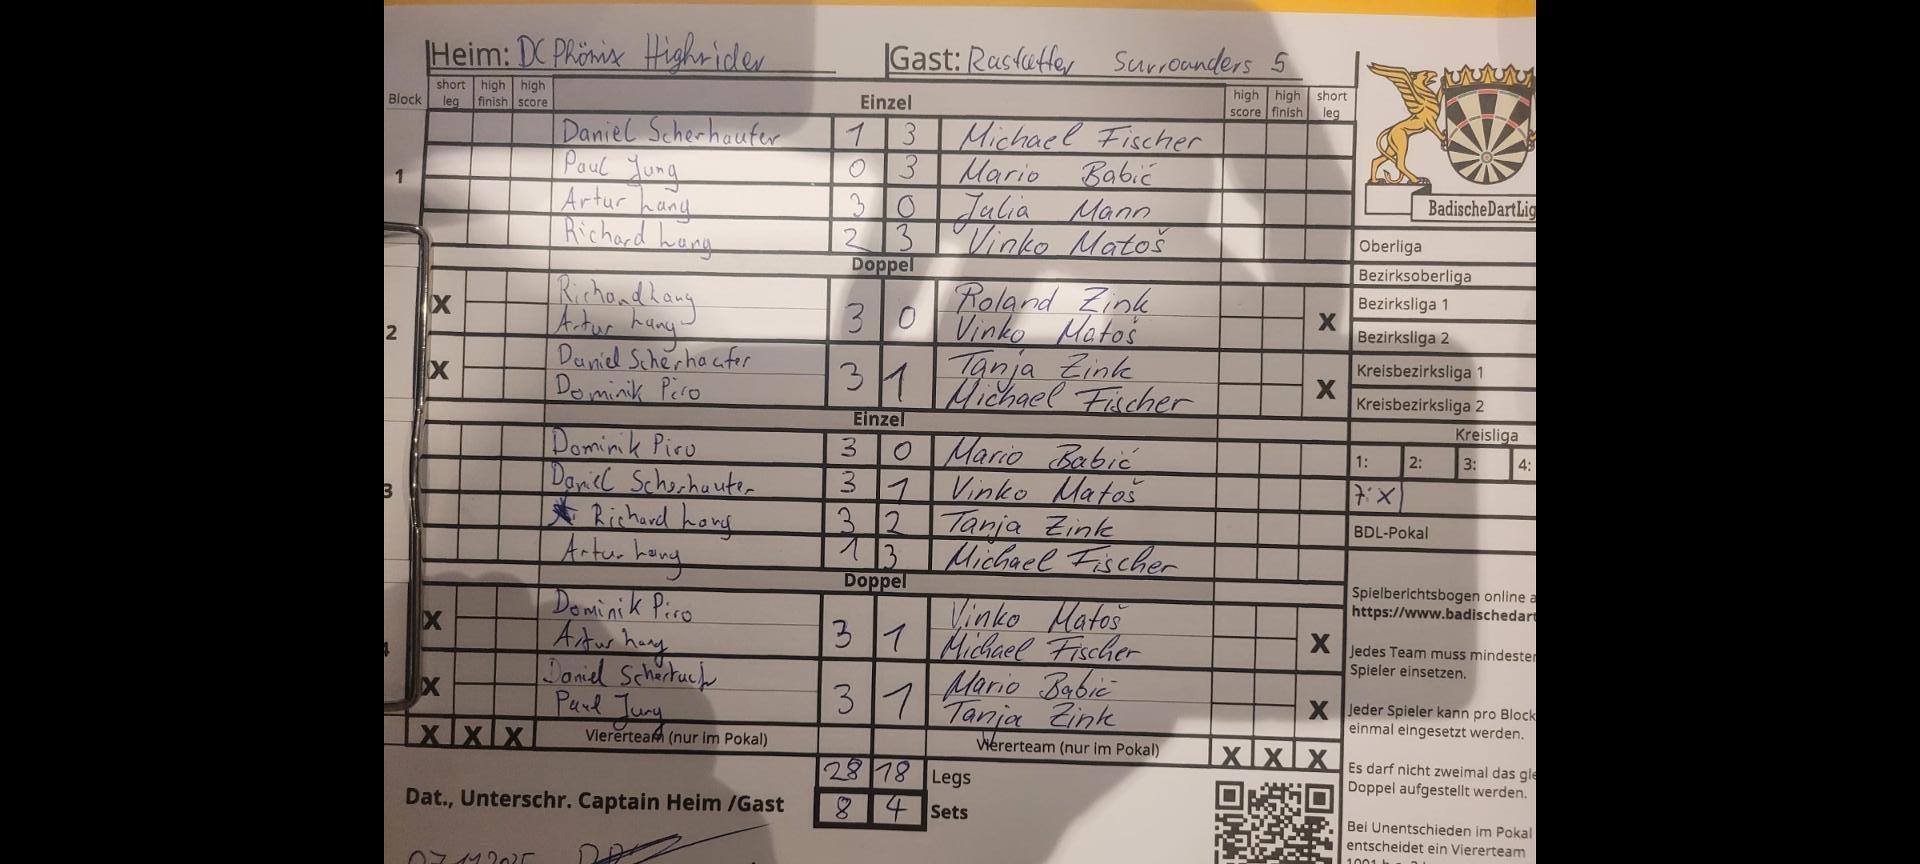 Heim: DC Phönix Highrider Gast: Rastatter Surrounders 5
Block short leg high finish high score Einzel high score high finish short leg
1
Daniel Scherhaufer 1 3 Michael Fischer
Paul Jung 0 3 Mario Babić
Artur Lang 3 0 Julia Mann
Richard Lang 2 3 Vinko Matoš
Doppel
2
X Richard Lang 3 0 Roland Zink X
Artur Lang Vinko Matoš
X Daniel Scherhaufer 3 1 Tanja Zink X
Dominik Piro Michael Fischer
Einzel
3
Dominik Piro 3 0 Mario Babić
Daniel Scherhaufer 3 1 Vinko Matoš
Richard Lang 3 2 Tanja Zink
Artur Lang 1 3 Michael Fischer
Doppel
4
X Dominik Piro 3 1 Vinko Matoš X
Artur Lang Michael Fischer
X Daniel 3 1 Mario Babić X
Paul Jung Tanja Zink
X X X Viererteam (nur im Pokal) Viererteam (nur im Pokal) X X X
28 18 Legs
Dat., Unterschr. Captain Heim /Gast 8 4 Sets
BadischeDartLig
Oberliga
Bezirksoberliga
Bezirksliga 1
Bezirksliga 2
Kreisbezirksliga 1
Kreisbezirksliga 2
Kreisliga
1: 2: 3: 4:
7: X
BDL-Pokal
Spielberichtsbogen online a
https://www.badischedart
Jedes Team muss mindester
Spieler einsetzen.
Jeder Spieler kann pro Block
einmal eingesetzt werden.
Es darf nicht zweimal das gle
Doppel aufgestellt werden.
Bei Unentschieden im Pokal
entscheidet ein Viererteam